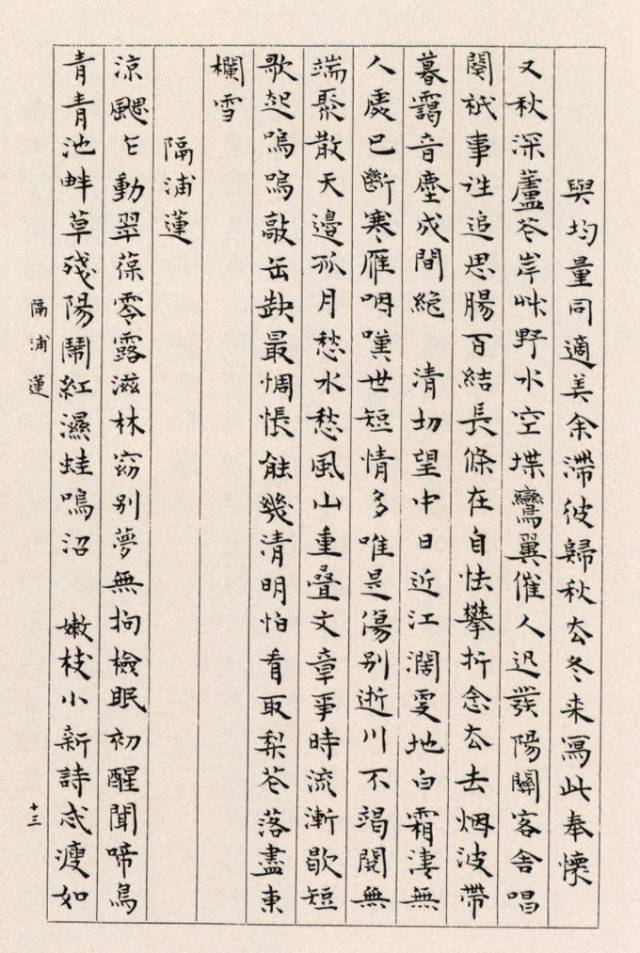 與均量同適美余滯彼歸秋去冬来寫此奉懷
又秋深蘆花岸艸野水空堞鸞翼催人迟發陽關客舍唱
闋祇事誰追思腸百結長條在自怯攀折念去去烟波帶
暮靄音塵成間絶　清切望中日近江濶雯地白霜凄無
人處已斷寒雁咽嘆世短情多唯是傷別逝川不竭閒無
端聚散天邊孤月愁水愁風山重叠文章事時流漸歇短
歌起嗚嗚敲缶缺最惆悵能幾清明怕看取梨花落盡東
欄雪
隔浦蓮
涼颸乍動翠葆零露滋林窈別夢無拘檢眠初醒聞啼鳥
青青池畔草殘陽鬧紅濕蛙鳴沼　嫩枝小新詩忒瘦如
隔浦蓮
十三